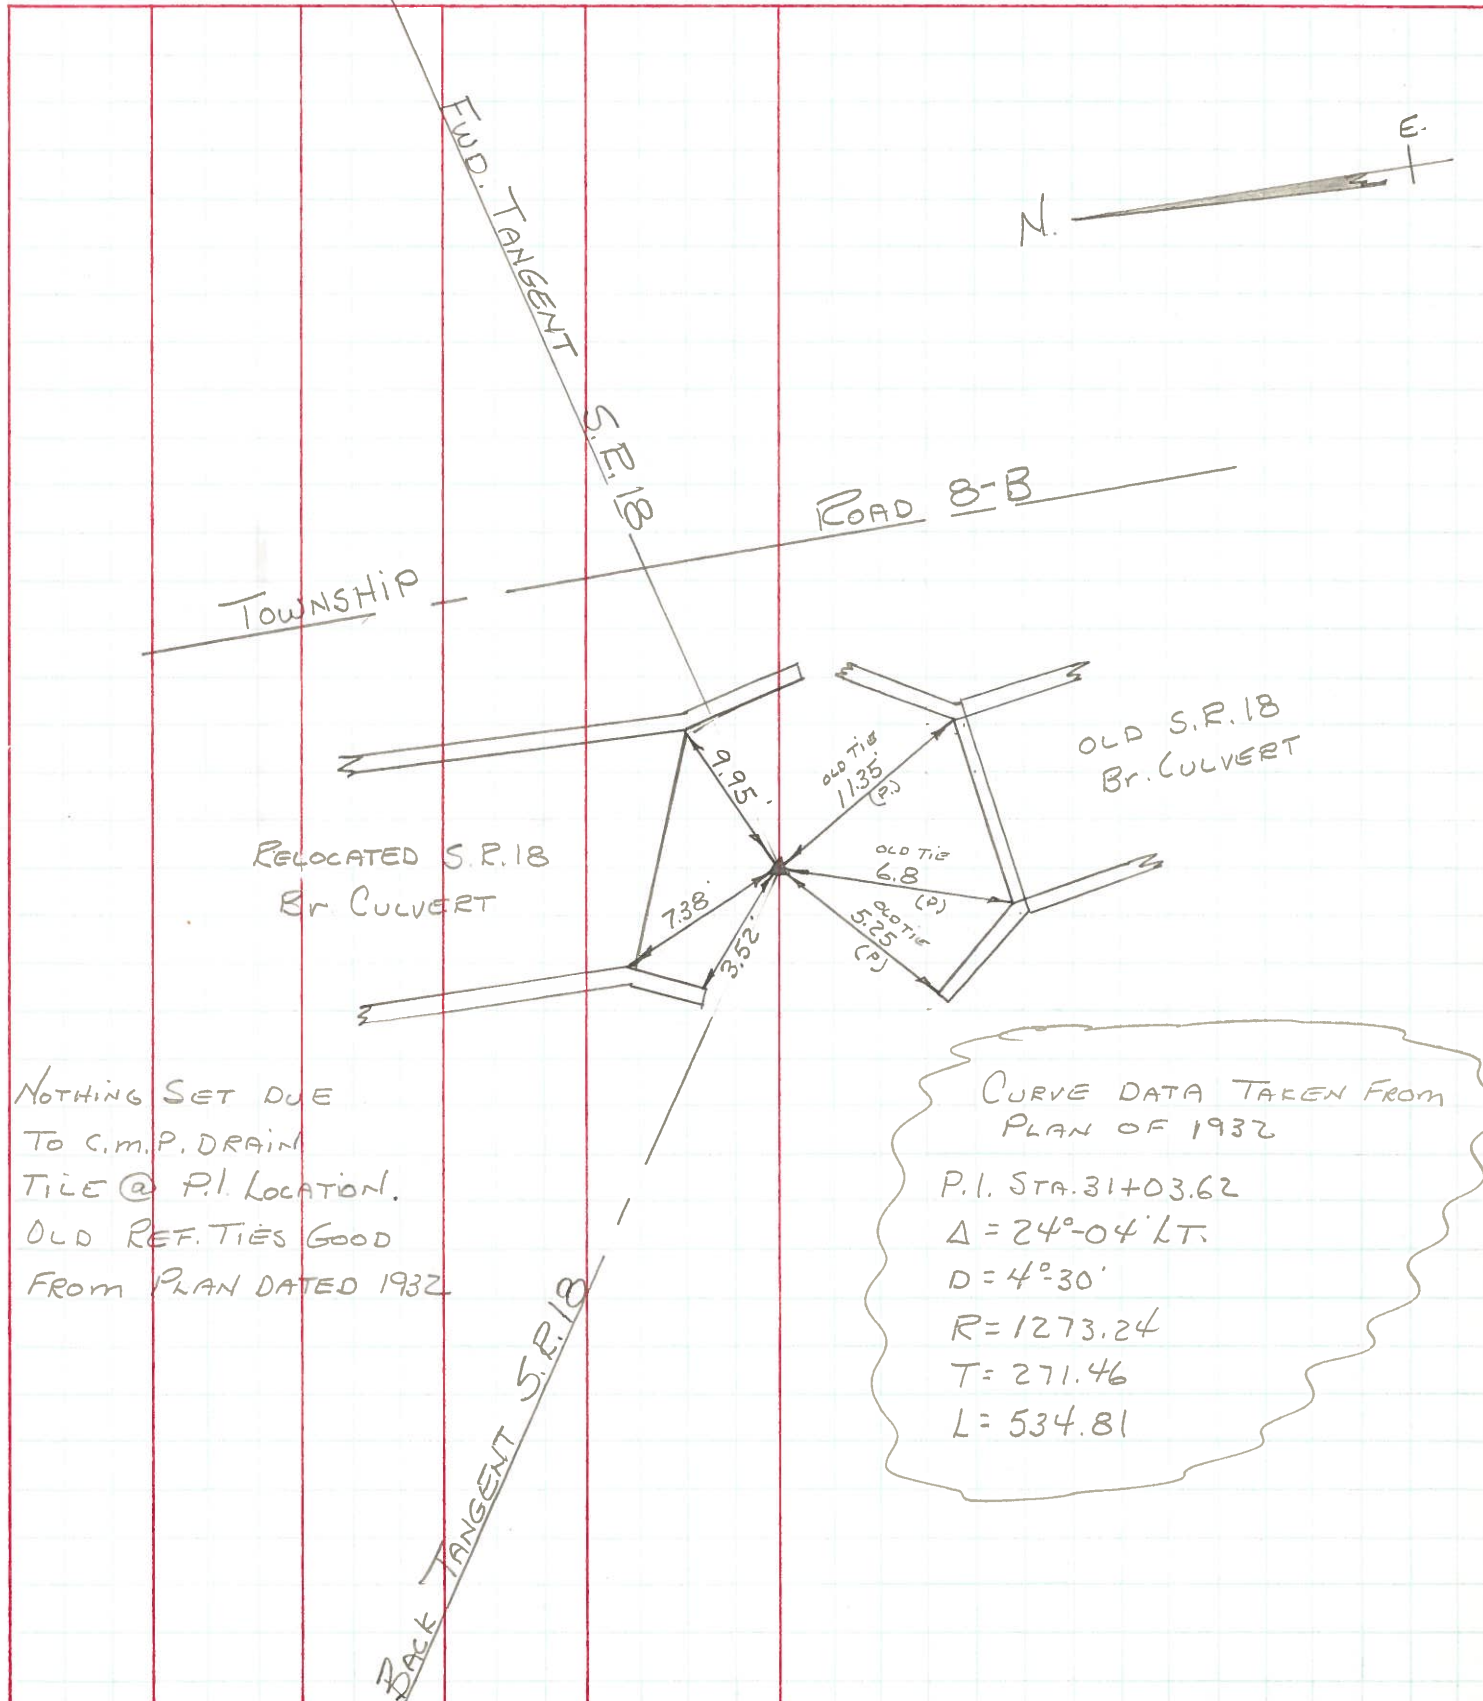 E.
N.
FWD. TANGENT S.R. 18
TOWNSHIP ROAD 8-B
OLD S.R. 18
Br. CULVERT
OLD TIE
11.35'
(P.)
9.95'
RELOCATED S.R. 18
Br CULVERT
OLD TIE
6.8
(P)
7.38'
3.52'
OLD TIE
5.25
(P)
NOTHING SET DUE
TO C.M.P. DRAIN
TILE @ P.I. LOCATION.
OLD REF. TIES GOOD
FROM PLAN DATED 1932
CURVE DATA TAKEN FROM
PLAN OF 1932
P.I. STA. 31+03.62
Δ = 24°-04' LT.
D = 4°-30'
R = 1273.24
T = 271.46
L = 534.81
BACK TANGENT S.R. 18